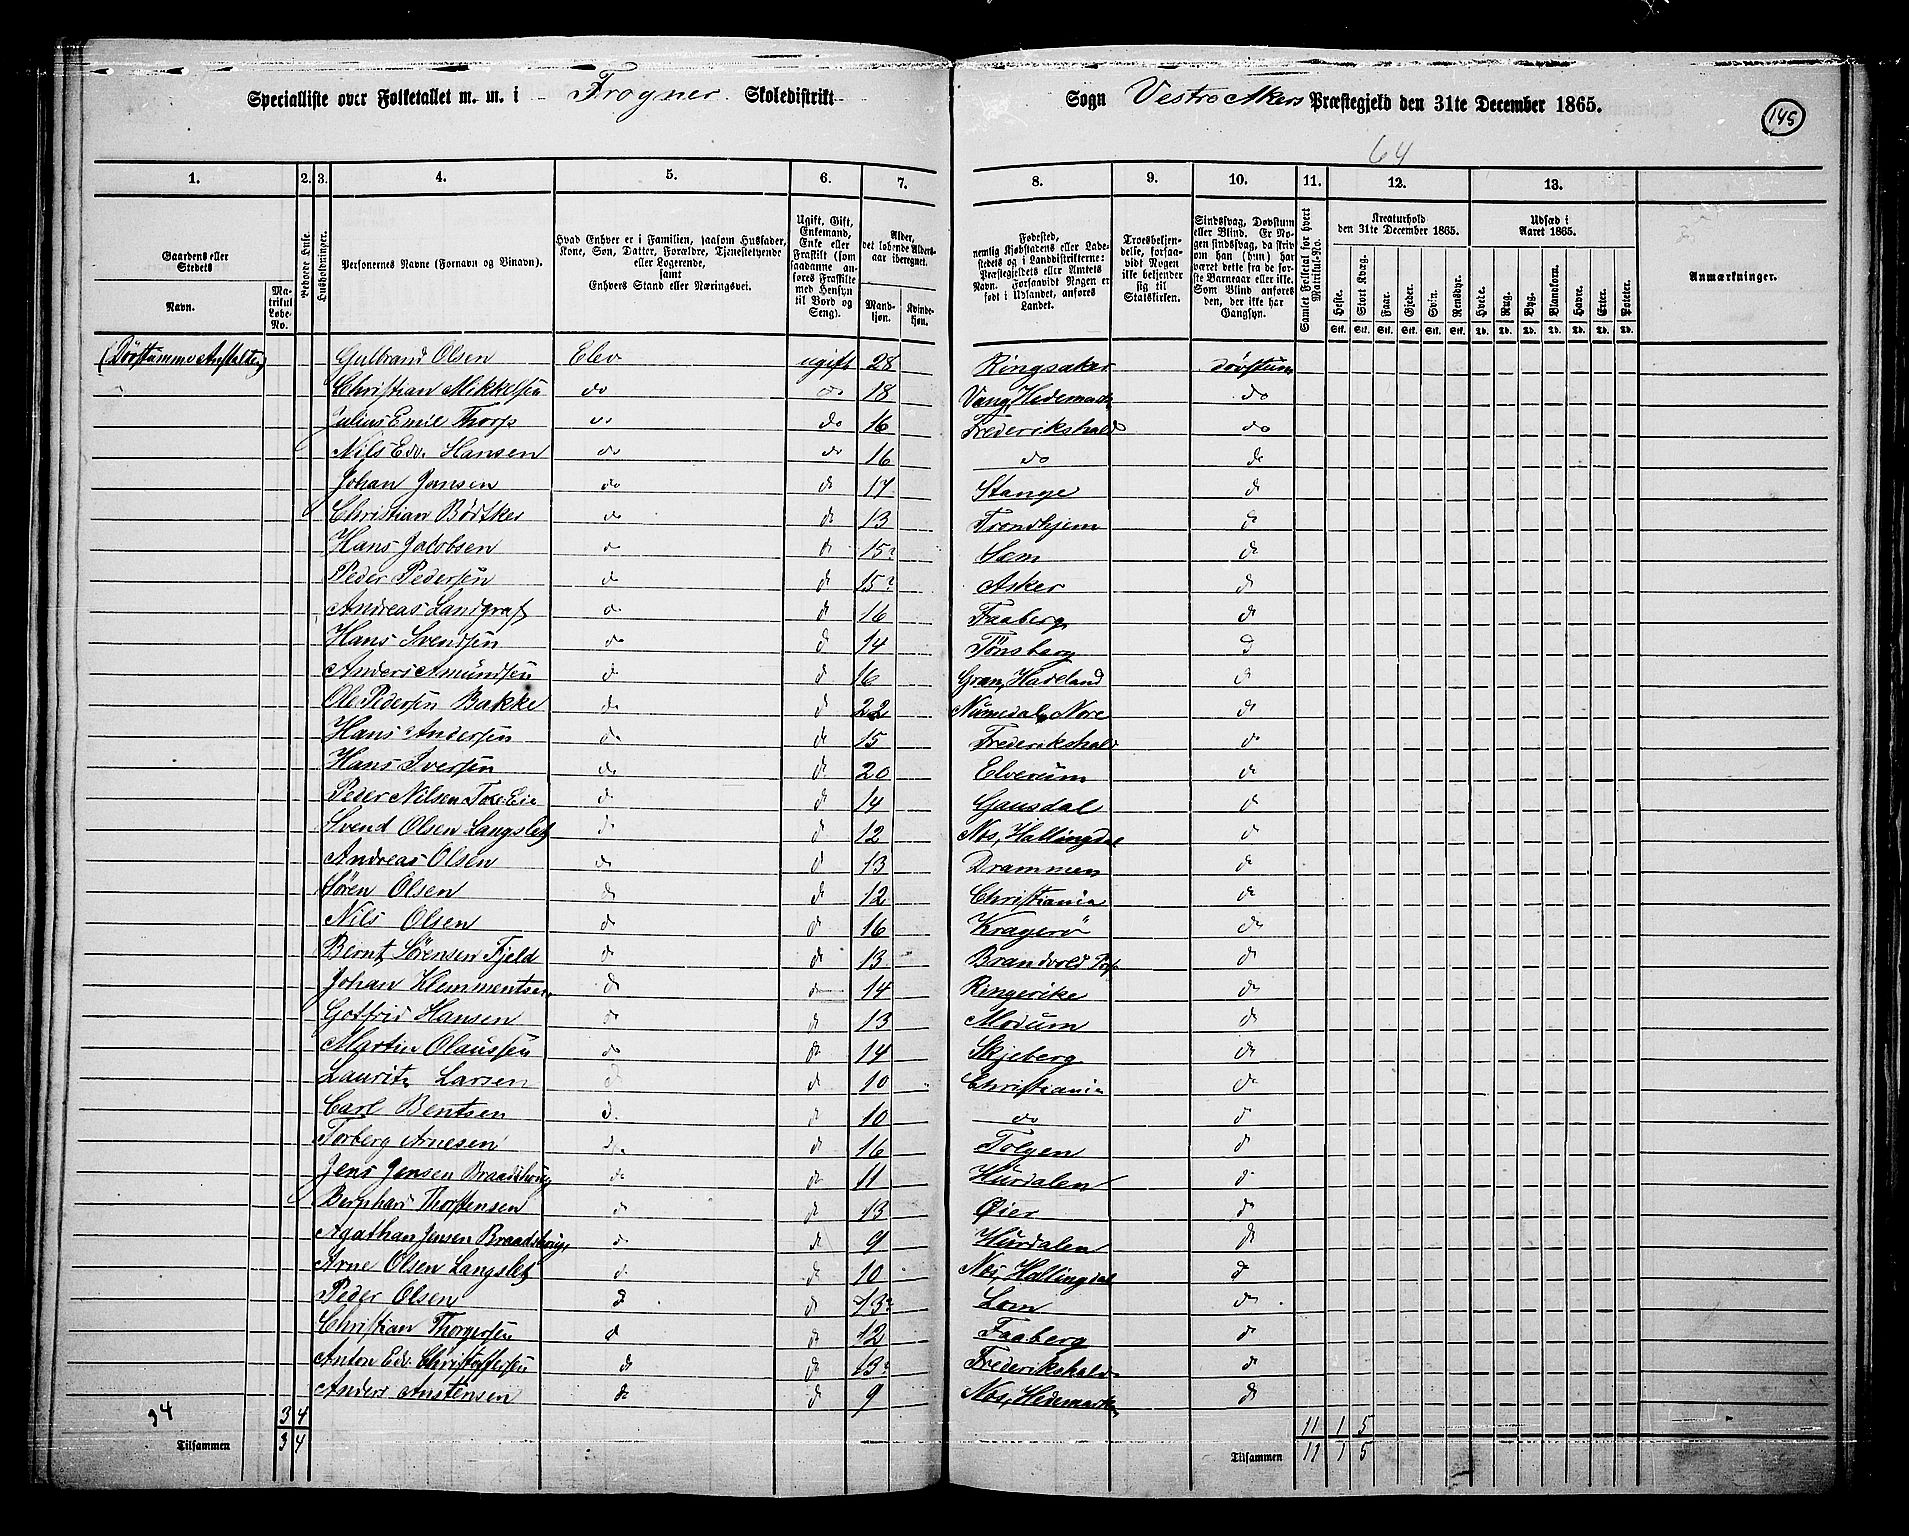 Specialliste over Folketallet m. m. i Frogner Skoledistrikt
Sogn Vestre Akers Præstegjeld den 31te December 1865.
145
64
1. 2. 3. 4. 5. 6. 7. 8. 9. 10. 11. 12. 13.
Gaardens eller Stedets
Navn.
Matrikul Løbe-No.
Beboede Huse.
Husholdninger.
Personernes Navne (Fornavn og Tilnavn).
Hvad Enhver er i Familien, saasom Husfader, Kone, Søn, Datter, Forældre, Tjenestetyende eller Logerende, samt Enhvers Stand eller Næringsvei.
Ugift, Gift, Enkemand, Enke eller Fraskilt (som saadanne anføres Fraskilte med Hensyn til Bord og Seng).
Alder, det løbende Alders-aar iberegnet.
Mandkjøn.
Kvindekjøn.
Fødested, nemlig Kjøbstadens eller Ladestedets og i Landdistrikterne: Præstegjeldets eller Amtets Navn. Forsaavidt Nogen er født i Udlandet, anføres Landet.
Troesbekjendelse, forsaavidt Nogen ikke bekjender sig til Statskirken.
Sindssvag, Døvstum eller Blind. Er Nogen sindssvag, da skriv om han (hun) har været dette fra de første Barneaar eller ikke. Som Blind anføres den, der ikke har Gangsyn.
Samlet Folketal for hvert Matrikul-No.
Kreaturhold den 31te December 1865.
Heste. Stort Kvæg. Faar. Gjeder. Svin. Rensdyr.
Stk. Stk. Stk. Stk. Stk. Stk.
Udsæd i Aaret 1865.
Hvede. Rug. Byg. Blandkorn. Havre. Erter. Poteter.
Td. Td. Td. Td. Td. Td. Td.
Anmærkninger.
(Døvstumme Anstalten) Gulbrand Olsen Elev ugift 28 Ringsaker døvstum
Christian Mikkelsen do do 18 Vang, Hedemark do
Julius Emil Thorp do do 16 Frederikshald do
Nils Edv. Hansen do do 16 do do
Johan Jansen do do 17 Stange do
Christian Bødtker do do 13 Trondhjem do
Hans Jacobsen do do 15 Sem do
Peder Pedersen do do 15 Asker do
Andreas Landgraf do do 16 Faaberg do
Hans Svendsen do do 14 Tönsberg do
Anders Amundsen do do 16 Gran, Hadeland do
Ole Pedersen Bakke do do 22 Numedal, Nore do
Hans Andersen do do 15 Frederikshald do
Hans Iversen do do 20 Elverum do
Peder Nilsen do do 14 Gausdal do
Svend Olsen Langslet do do 12 Nes, Hallingdal do
Andreas Olsen do do 13 Drammen do
Sören Olsen do do 12 Christiania do
Nils Olsen do do 16 Kragerö do
Bernt Sörensen Fjeld do do 13 Brandvold do
Johan Klemmentsen do do 14 Ringerike do
Gotfrid Hansen do do 13 Modum do
Martin Olaussen do do 14 Skjeberg do
Lauritz Larsen do do 10 Christiania do
Carl Bentsen do do 10 do do
Torberg Arnesen do do 16 Tolgen do
Jens Jensen Braadthoug do do 11 Hurdalen do
Bernhard Thorstensen do do 13 Øier do
Agathan Jensen Braadthoug do do 9 Hurdalen do
Arne Olsen Langslet do do 10 Nes, Hallingdal do
Peder Olsen do do 13 Lom do
Christian Thorgersen do do 12 Faaberg do
Anton Edv. Christoffersen do do 13 Frederikshald do
Anders Anstensen do do 9 Nes, Hedemarken do
34 3 4 11 1 5
Tilsammen 3 4 Tilsammen 11 1 5